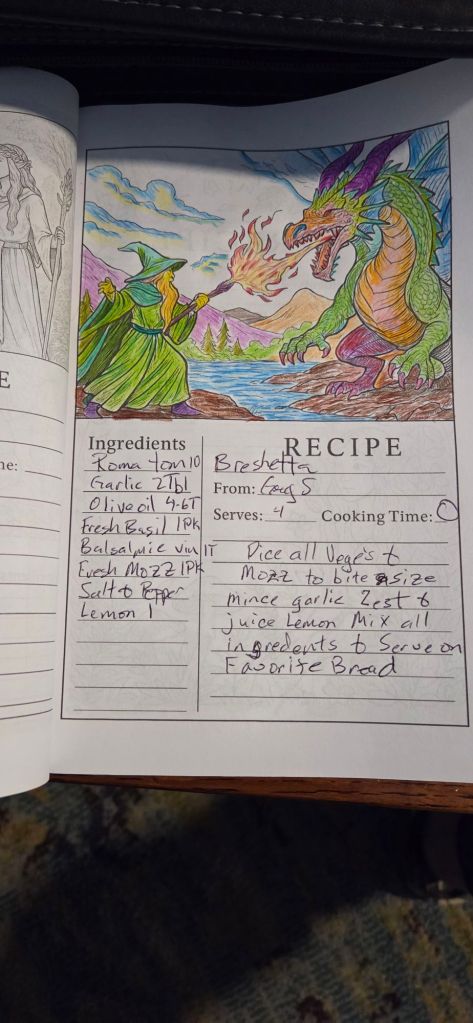 E
ne:
Ingredients
Roma tom 10
Garlic 2Tbl
Olive oil 4-6T
Fresh Basil 1PK
Balsalmic vin 1T
Fresh Mozz 1PK
Salt & Pepper
Lemon 1
RECIPE
Breshetta
From: Greg S
Serves: 4 Cooking Time: 0
Dice all Vege's &
Mozz to bite size
mince garlic Zest &
juice Lemon Mix all
ingredents & Serve on
Favorite Bread